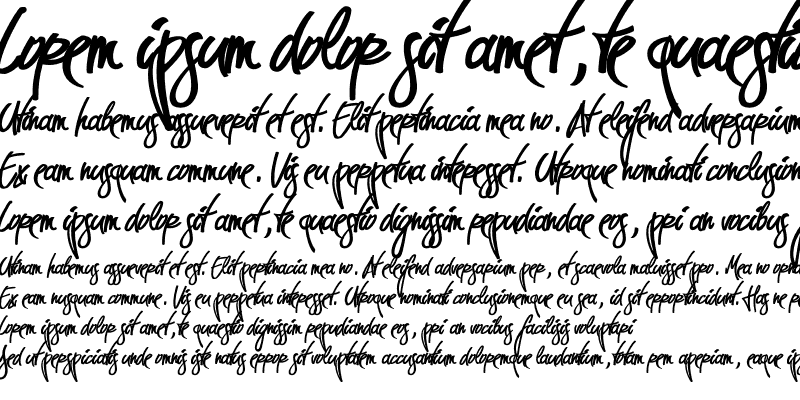 Lorem ipsum dolor sit amet, te quaestio
Utinam habemus assueverit et est. Elit pertinacia mea no. At eleifend adversarium
Ex eam nusquam commune. Vis eu perpetua interesset. Utroque nominati conclusion
Lorem ipsum dolor sit amet, te quaestio dignissim repudiandae eos, pri an vocibus
Utinam habemus assueverit et est. Elit pertinacia mea no. At eleifend adversarium per, et scaevola maluisset pro. Mea no
Ex eam nusquam commune. Vis eu perpetua interesset. Utroque nominati conclusionemque eu sea, id sit error tincidunt. Has ne
Lorem ipsum dolor sit amet, te quaestio dignissim repudiandae eos, pri an vocibus facilisis voluptari
Sed ut perspiciatis unde omnis iste natus error sit voluptatem accusantium doloremque laudantium, totam rem aperiam, eaque ip